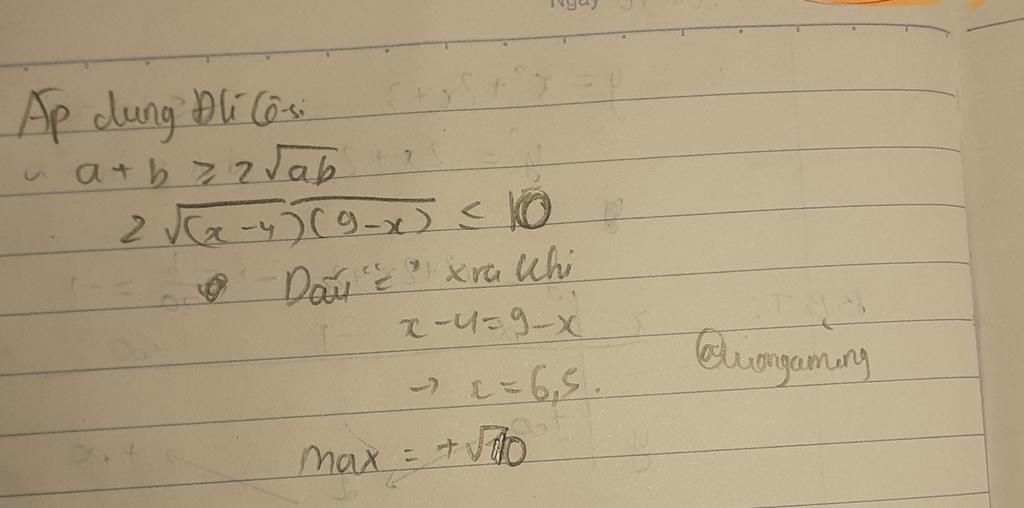 Ngày
Áp dụng Đlí Cô-si
a + b ≥ 2√ab
2√(x-4)(9-x) ≤ 10
Dấu "=" xra khi
x-4=9-x
→ x=6,5.
max = +√10